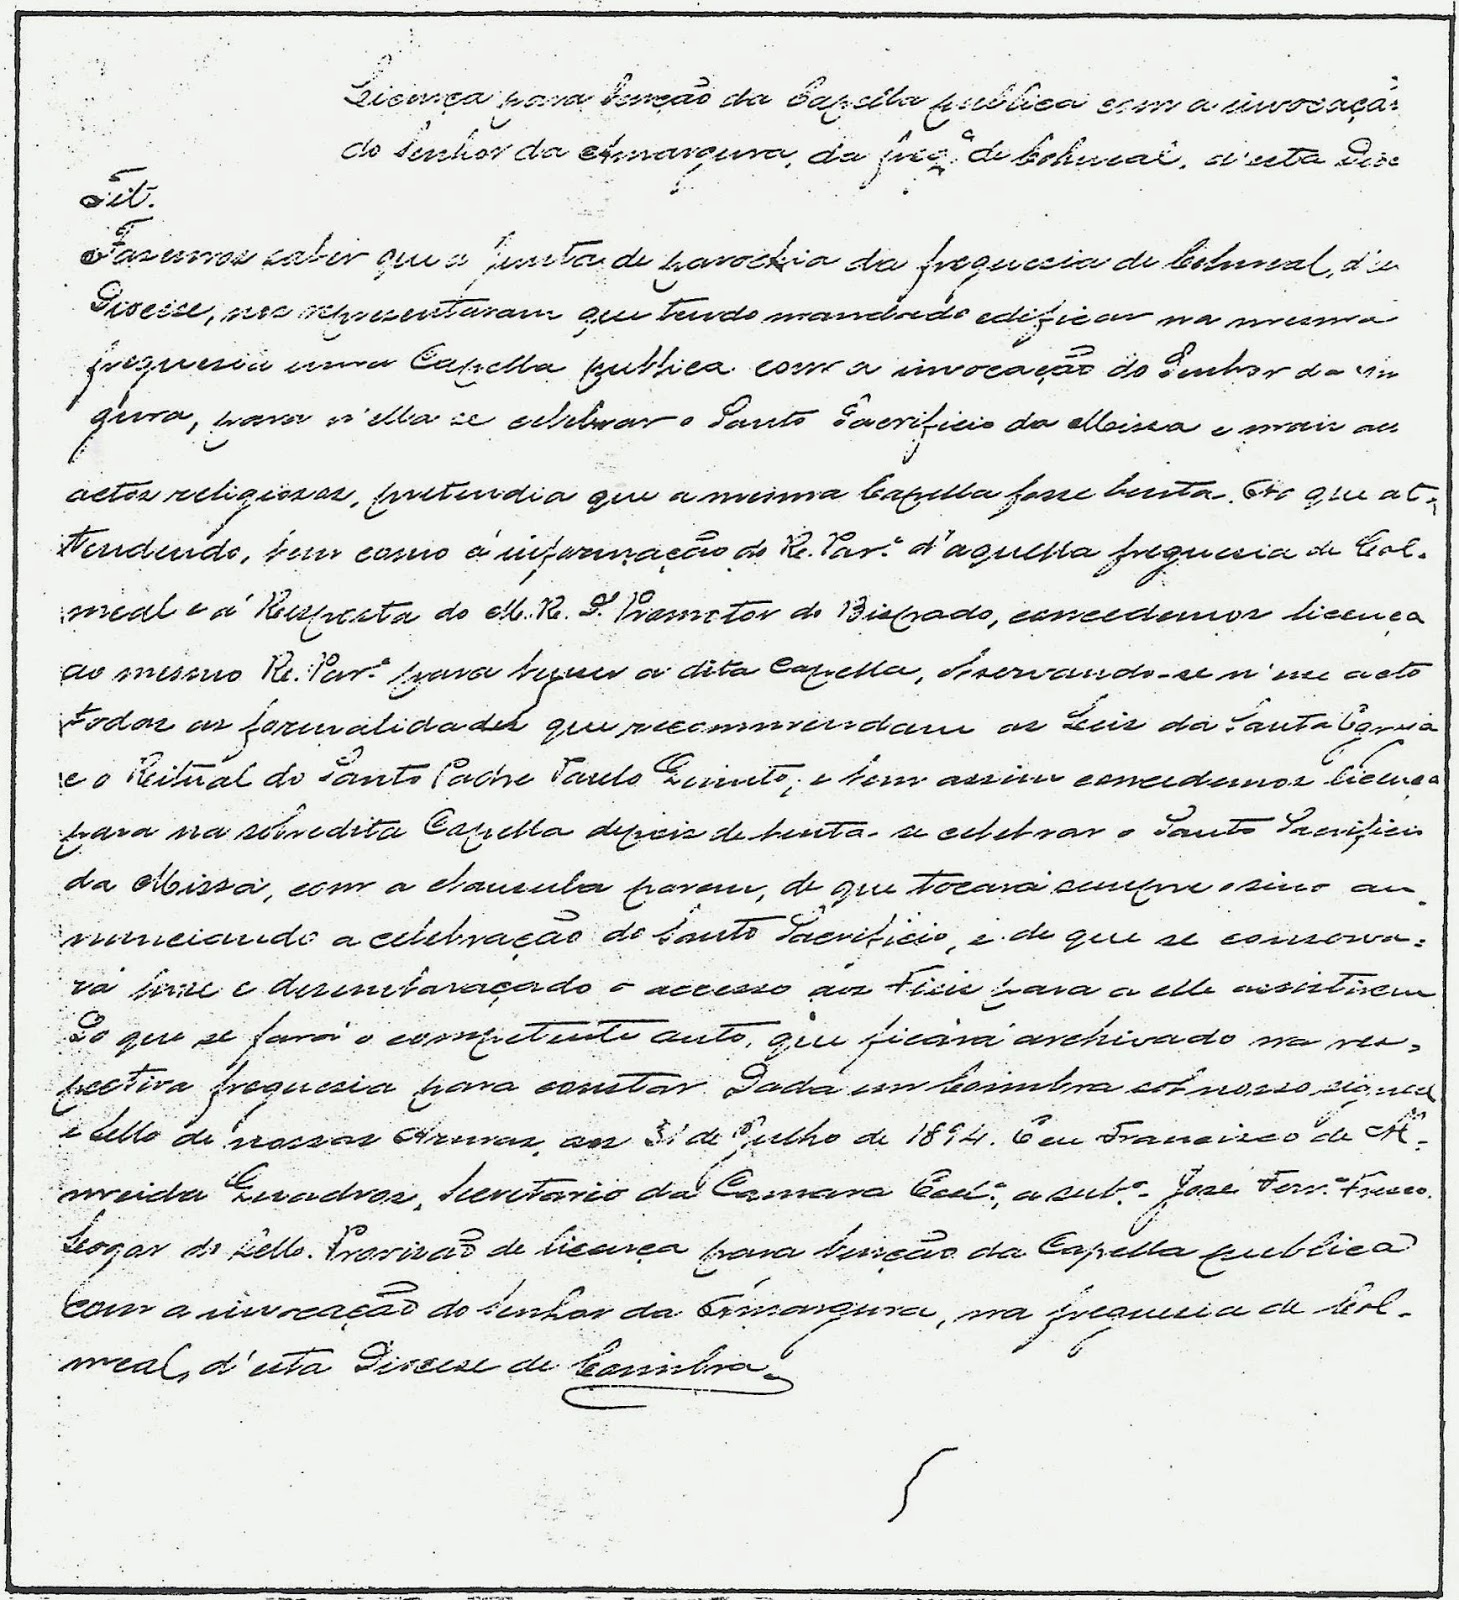 Licença para benção da Capella publica com a invocaçã
do Senhor da Amargura, da freg.ª de Colmeal, d'esta Dioc
Tit.
Fazemos saber que a Junta de parochia da freguesia de Colmeal, d'es
Diocese, nos representaram que tendo mandado edificar na mesma
freguesia uma Capella publica com a invocação do Senhor da Am
gura, para n'ella se celebrar o Santo Sacrificio da Missa e mais
actos religiosos, pretendia que a mesma Capella fosse benta. Ao que at-
tendendo, bem como á informação do R. Par.º d'aquella freguesia de Col-
meal e á Resposta do M. R. D.r Promotor do Bispado, concedemos licença
ao mesmo R. Par.º para benzer a dita Capella, observando-se n'esse acto
todas as formalidades que recommendam as Leis da Santa Egreja
e o Reitual do Santo Padre Paulo Quinto; e bem assim concedemos licença
para na sobredita Capella depois de benta se celebrar o Santo Sacrificio
da Missa, com a clausula porem, de que tocará sempre o sino an-
nunciando a celebração do Santo Sacrificio, e de que se conserva-
rá livre e desembaraçado o accesso aos Fieis para a elle assistirem
Do que se fará o competente auto, que ficará archivado na res-
pectiva freguesia para constar. Dada em Coimbra sob nosso signal
e Sello de nossas Armas, aos 31 de Julho de 1894. E eu Francisco de Al-
meida Quadros, Secretario da Camara Eccl.ª, a sub.º José Ferr.ª Fresco.
Logar do Sello. Provisão de licença para benção da Capella publica
com a invocação do Senhor da Amargura, na freguesia de Col-
meal, d'esta Diocese de Coimbra.